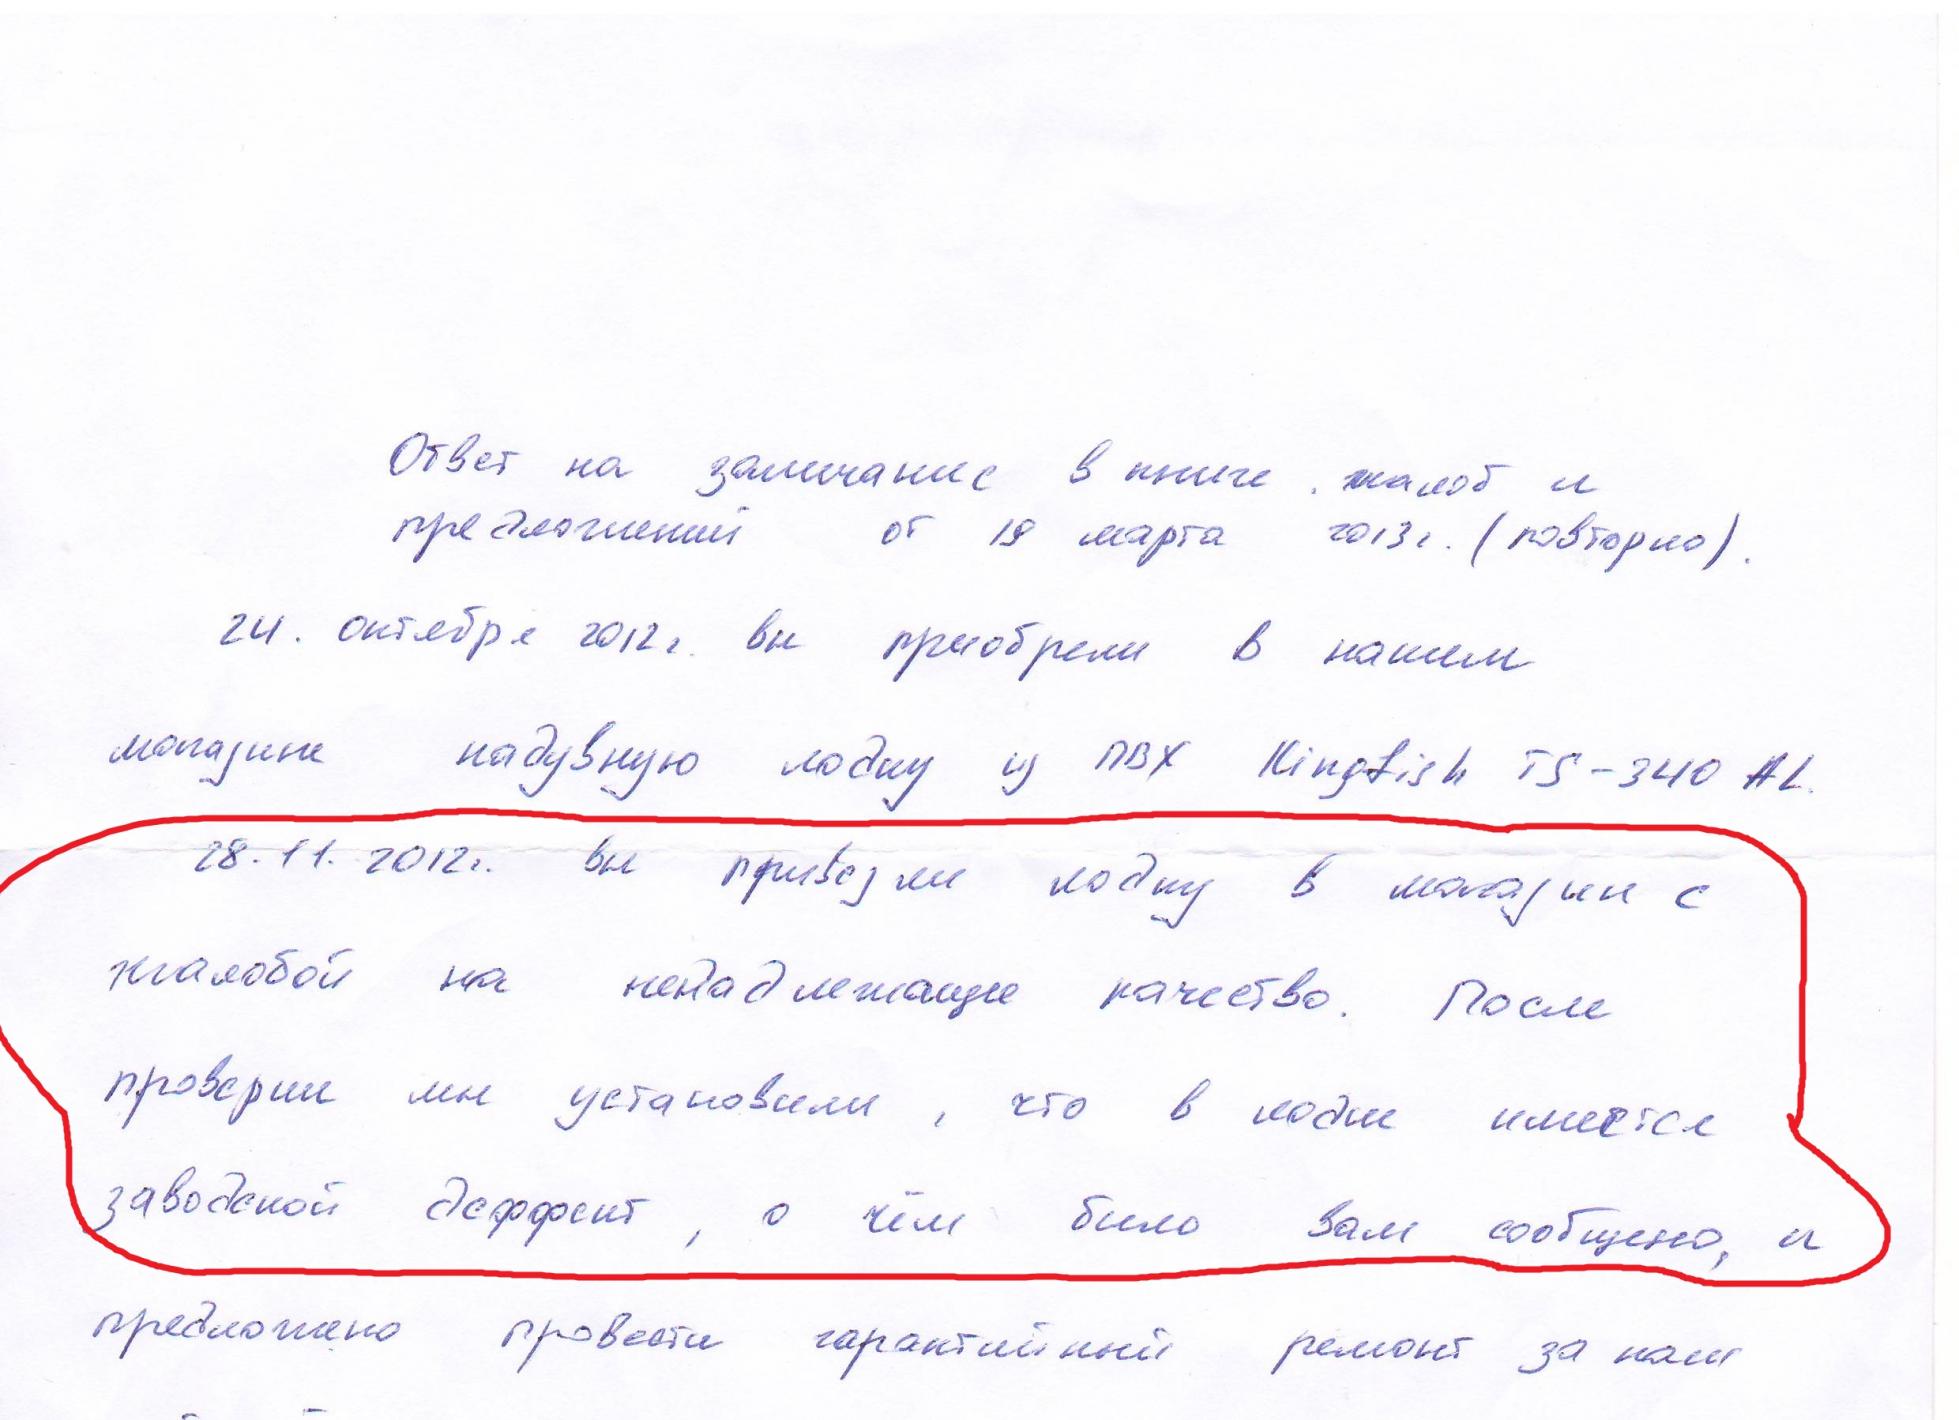 Ответ на замечание в книге жалоб и
предложений от 19 марта 2013г. (повторно).
24. октября 2012г. вы приобрели в нашем
магазине надувную лодку из ПВХ Kingfish TS-340 AL.
28.11.2012г. вы привезли лодку в магазин с
жалобой на ненадлежащие качество. После
проверки мы установили, что в лодке имеется
заводской деффект, о чём было вам сообщено, и
предложено провести гарантийный ремонт за наш